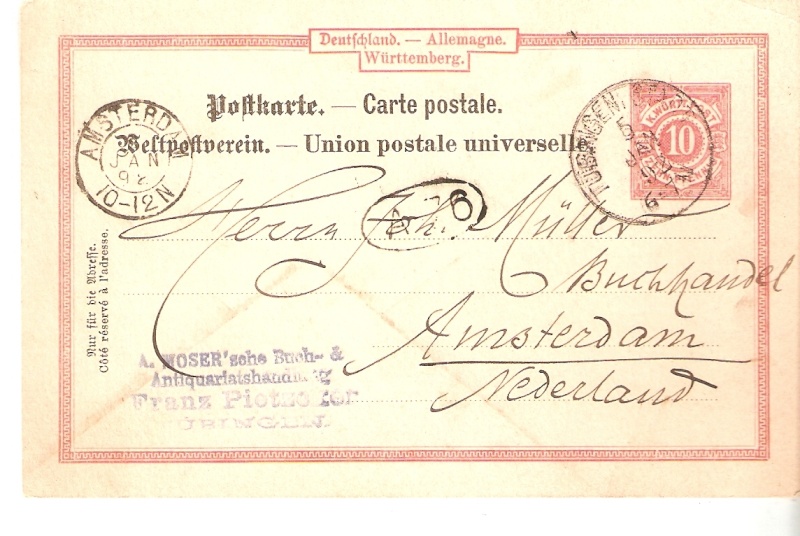 Deutschland. — Allemagne.
Württemberg.
Postkarte. — Carte postale.
Weltpostverein. — Union postale universelle.
AMSTERDAM
JAN
92
10-12N
TÜBINGEN
K.WÜRTT. POST
10
6
Herrn Joh. Müller
Buchhandel
Amsterdam
Nederland
Nur für die Adresse.
Côté réservé à l'adresse.
A. MOSER'sche Buch- &
Antiquariatshandlung
Franz Pietzcker
TÜBINGEN